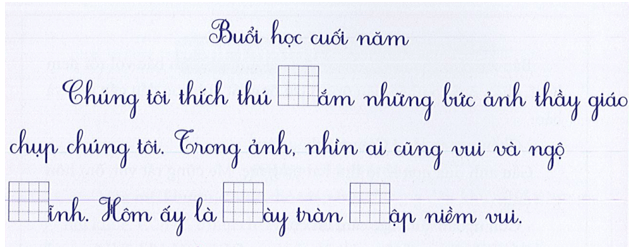 Buổi học cuối năm
Chúng tôi thích thú ắm những bức ảnh thầy giáo
chụp chúng tôi. Trong ảnh, nhìn ai cũng vui và ngộ
ĩnh. Hôm ấy là ày tràn ập niềm vui.